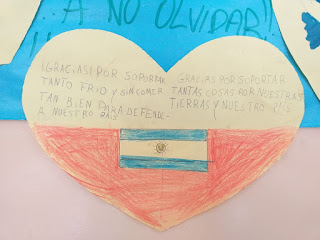 A NO OLVIDAR!!
¡GRACIAS! POR SOPORTAR
TANTO FRIO Y SIN COMER
TAN BIEN PARA DEFENDE-
A NUESTRO
GRACIAS POR SOPORTAR
TANTAS COSAS POR NUESTRAS
TIERRAS Y NUESTRO